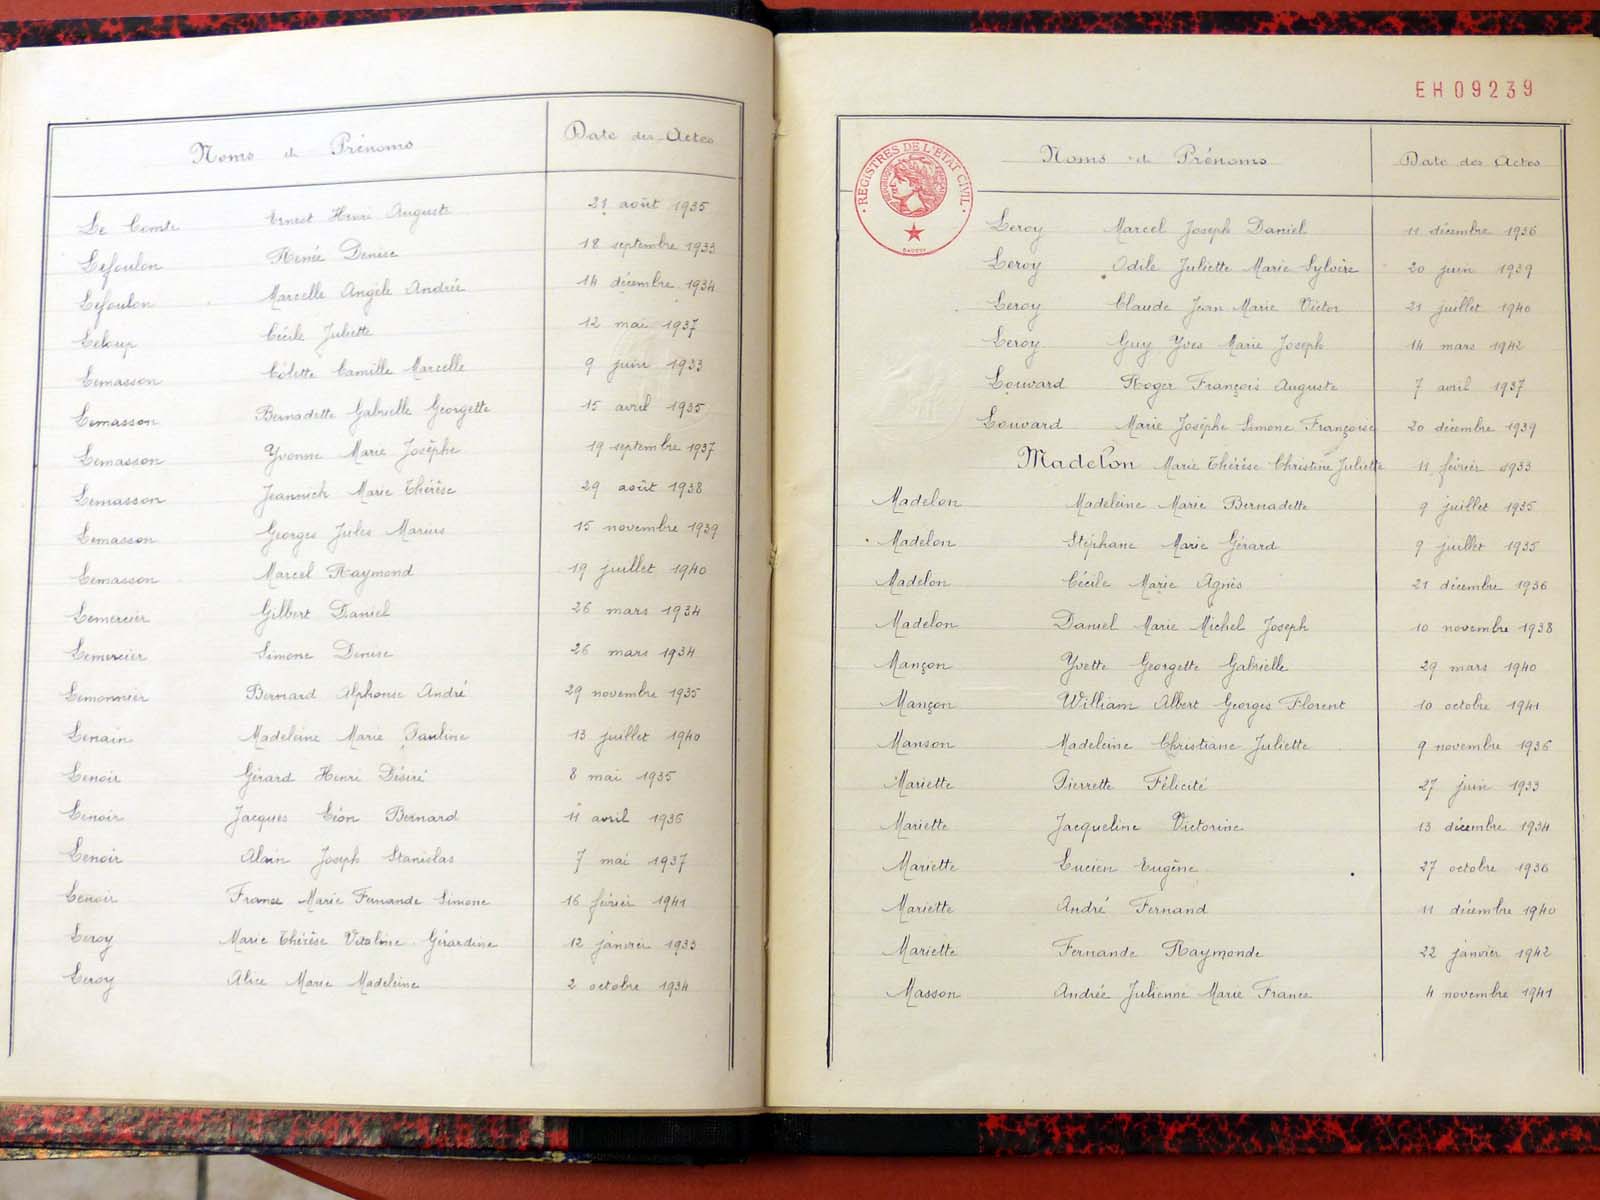 Noms et Prénoms Date des Actes
Le Comte Ernest Henri Auguste 21 août 1935
Lefoulon Renée Denise 18 septembre 1933
Lefoulon Marcelle Angèle Andrée 14 décembre 1934
Leloup Cécile Juliette 12 mai 1937
Lemasson Colette Camille Marcelle 9 juin 1933
Lemasson Bernadette Gabrielle Georgette 15 avril 1935
Lemasson Yvonne Marie Josèphe 19 septembre 1937
Lemasson Jeannick Marie Thérèse 29 août 1938
Lemasson Georges Jules Marius 15 novembre 1939
Lemasson Marcel Raymond 19 juillet 1940
Lemercier Gilbert Daniel 26 mars 1934
Lemercier Simone Denise 26 mars 1934
Lemonnier Bernard Alphonse André 29 novembre 1935
Lenain Madeleine Marie Pauline 13 juillet 1940
Lenoir Gérard Henri Désiré 8 mai 1935
Lenoir Jacques Léon Bernard 11 avril 1936
Lenoir Alain Joseph Stanislas 7 mai 1937
Lenoir France Marie Fernande Simone 16 février 1941
Leroy Marie Thérèse Vitaline Gérardine 12 janvier 1933
Leroy Alice Marie Madeleine 2 octobre 1934
EH09239
REGISTRES DE L'ETAT CIVIL
Noms et Prénoms Date des Actes
Leroy Marcel Joseph Daniel 11 décembre 1936
Leroy Odile Juliette Marie Sylvère 20 juin 1939
Leroy Claude Jean Marie Victor 21 juillet 1940
Leroy Guy Yves Marie Joseph 14 mars 1942
Louvard Roger François Auguste 7 avril 1937
Louvard Marie Josèphe Simone Françoise 20 décembre 1939
Madelon Marie Thérèse Christine Juliette 11 février 1933
Madelon Madeleine Marie Bernadette 9 juillet 1935
Madelon Stéphane Marie Gérard 9 juillet 1935
Madelon Cécile Marie Agnès 21 décembre 1936
Madelon Daniel Marie Michel Joseph 10 novembre 1938
Mançon Yvette Georgette Gabrielle 29 mars 1940
Mançon William Albert Georges Florent 10 octobre 1941
Manson Madeleine Christiane Juliette 9 novembre 1936
Mariette Pierrette Félicité 27 juin 1933
Mariette Jacqueline Victorine 13 décembre 1934
Mariette Lucien Eugène 27 octobre 1936
Mariette André Fernand 11 décembre 1940
Mariette Fernande Raymonde 22 janvier 1942
Masson Andrée Julienne Marie France 4 novembre 1941